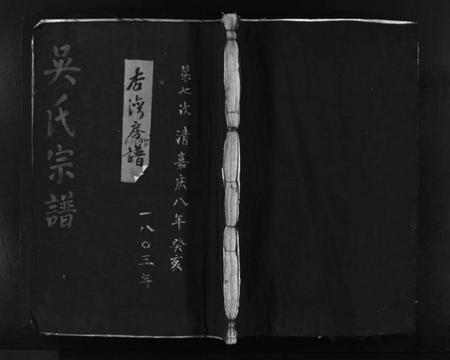 第七次 清嘉庆八年癸亥
一八〇三年
吴氏宗譜